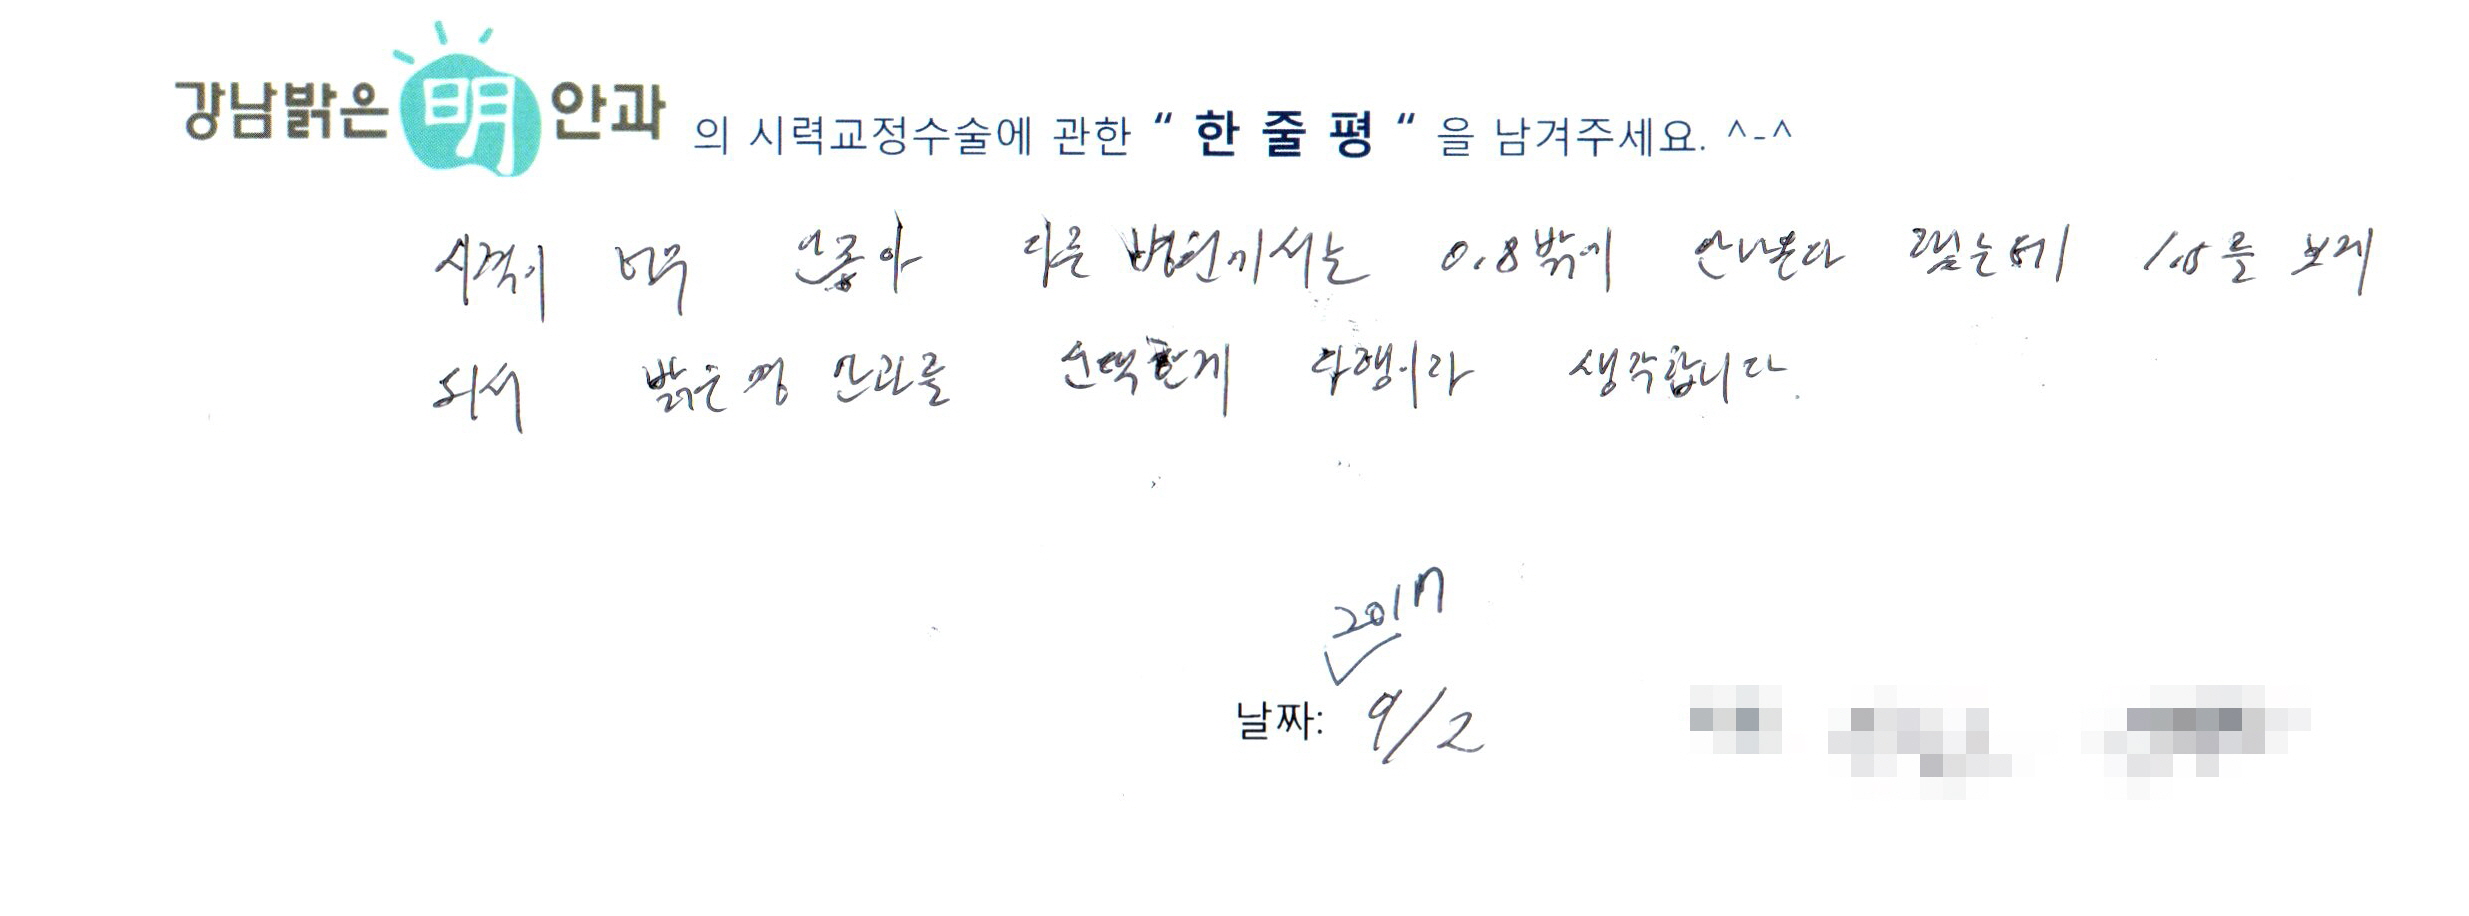 강남밝은明안과 의 시력교정수술에 관한 “ 한 줄 평 “ 을 남겨주세요. ^-^
시력이 너무 안좋아 다른 병원에서는 0.8밖에 안나온다 했는데 1.5를 보게
되서 밝은명 안과를 선택한게 다행이라 생각합니다.
2017
날짜: 9/2